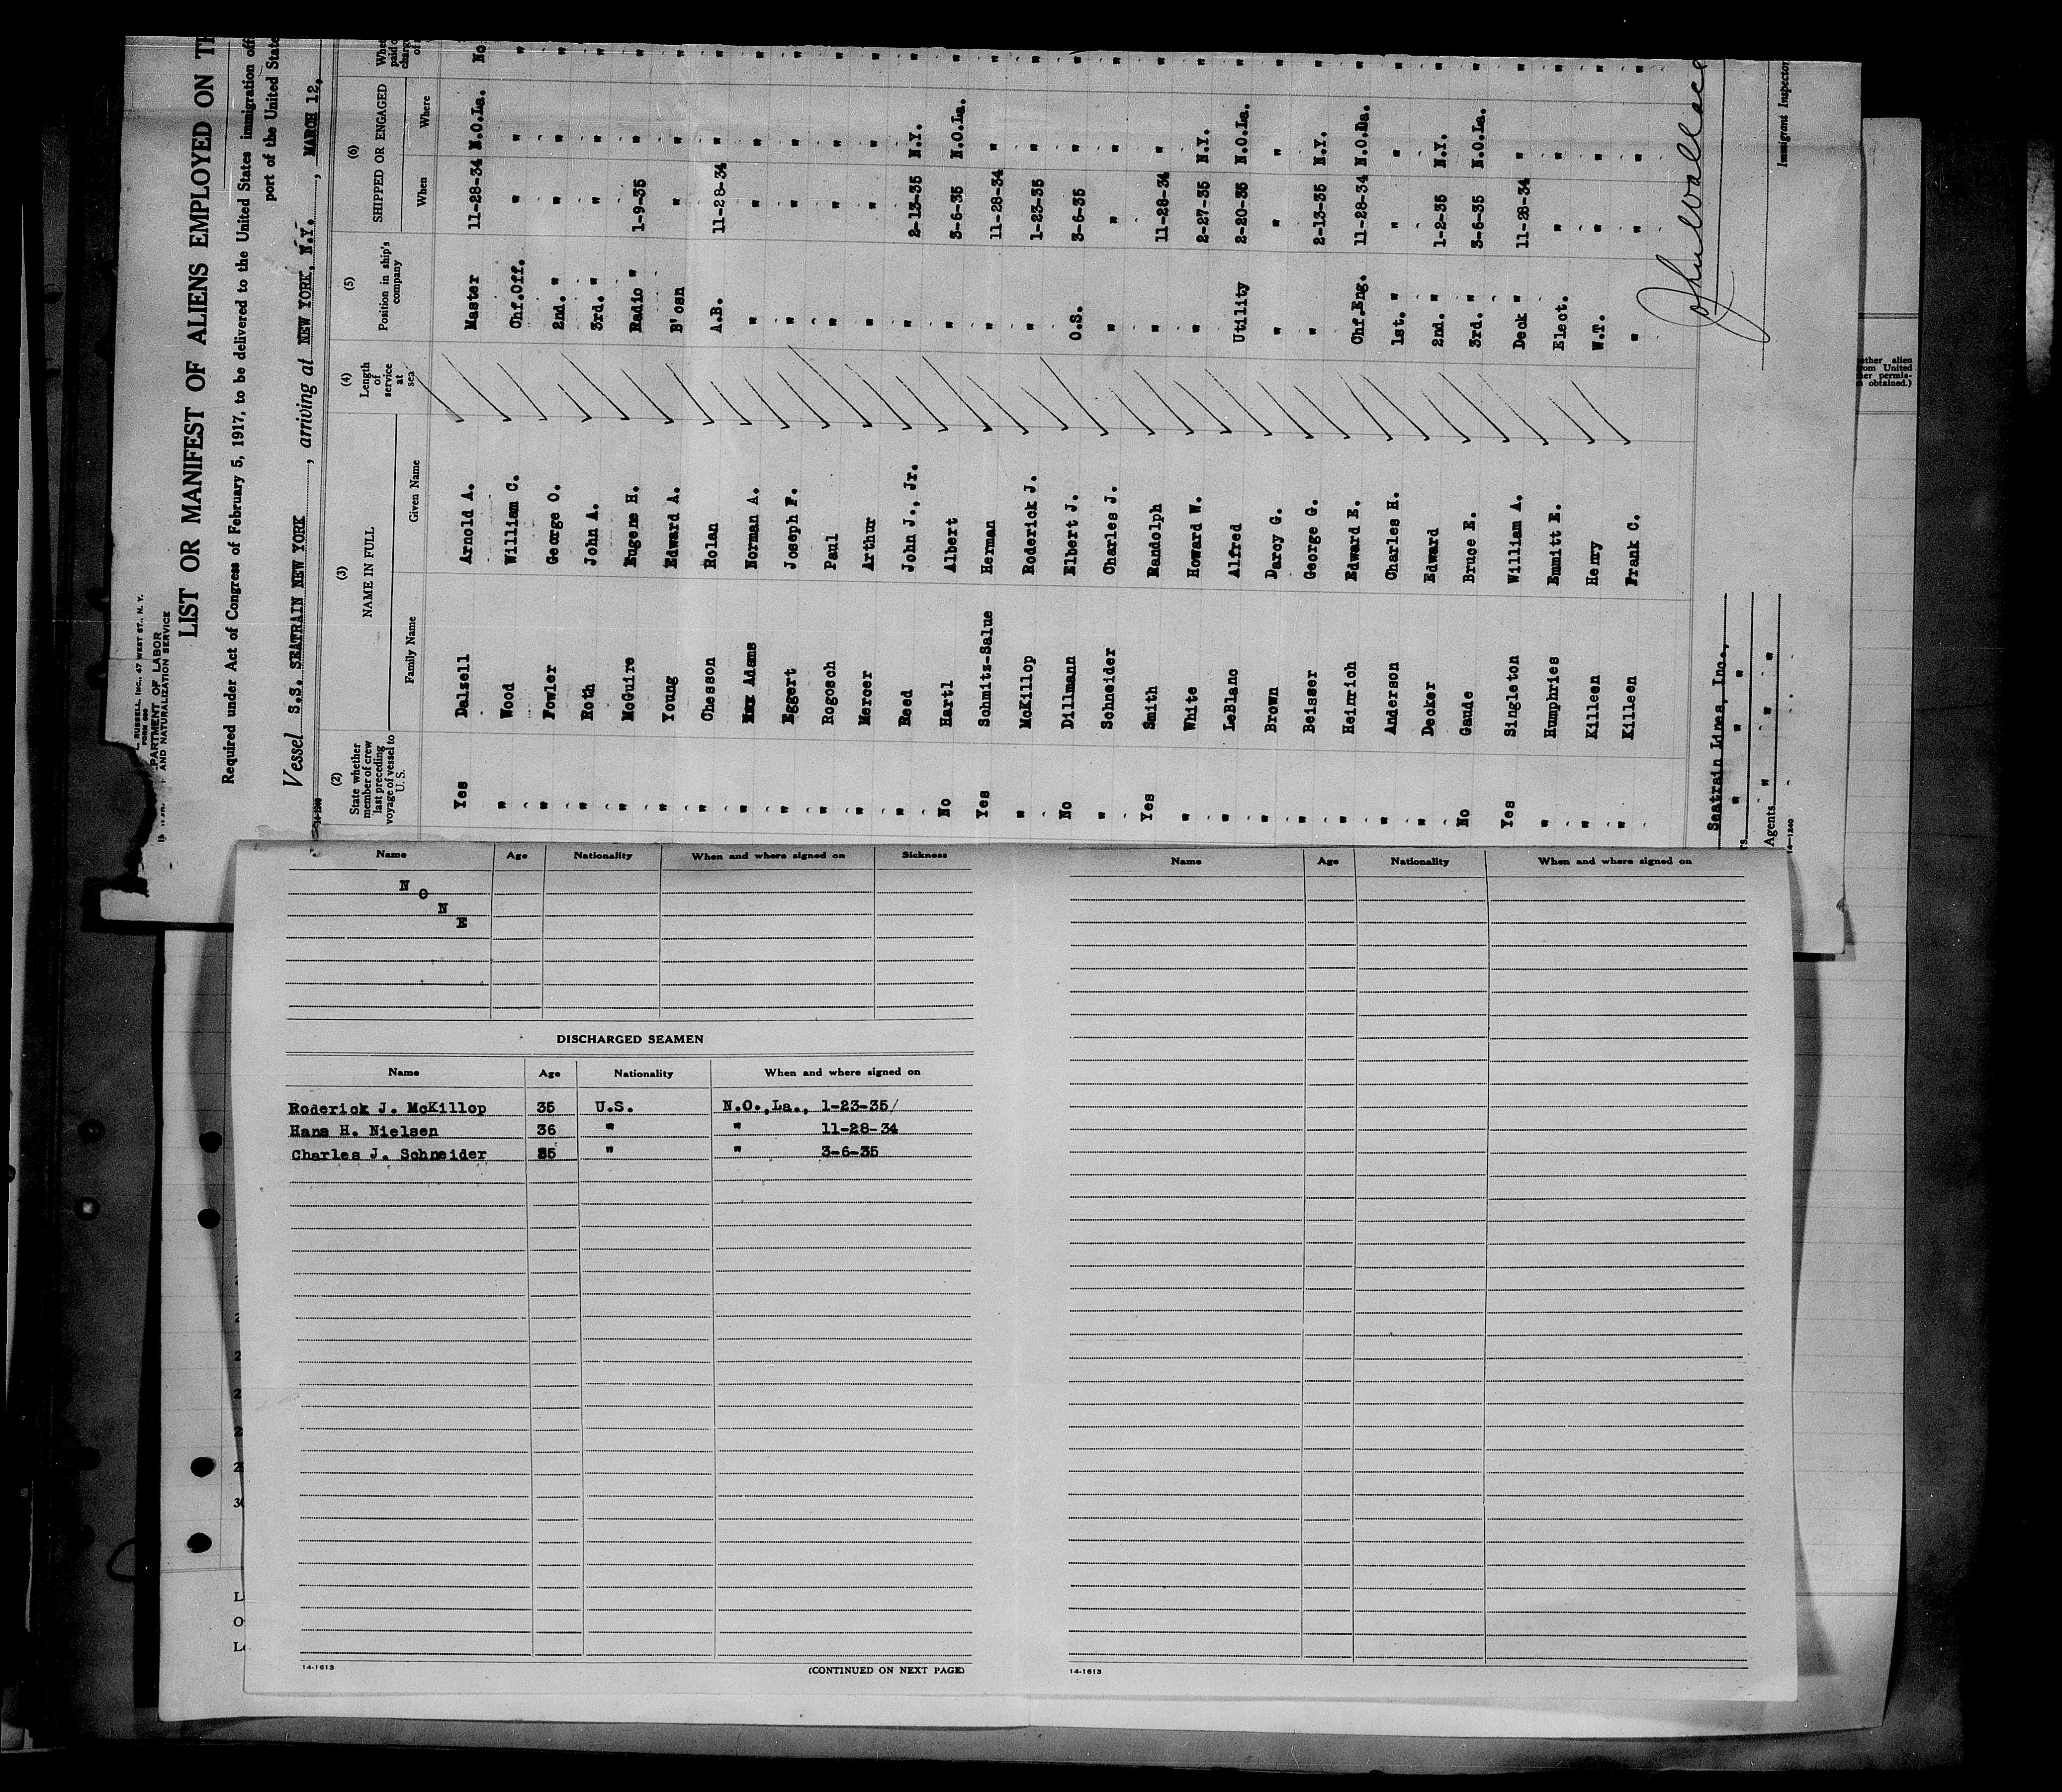 L. RUSSELL, INC., 47 WEST ST., N. Y.
FORM 680
PARTMENT OF LABOR
AND NATURALIZATION SERVICE
LIST OR MANIFEST OF ALIENS EMPLOYED ON TH
Required under Act of Congress of February 5, 1917, to be delivered to the United States immigration offi
port of the United State
Vessel S.S. SEATRAIN NEW YORK, arriving at NEW YORK, N.Y., MARCH 12,
(2) State whether member of crew last preceding voyage of vessel to U. S.
(3) NAME IN FULL
Family Name Given Name
(4) Length of service at sea
(5) Position in ship's company
(6) SHIPPED OR ENGAGED
When Where
Yes Dalzell Arnold A. Master 11-28-34 N.O.La. No
" Wood William C. Chf.Off. " " "
" Fowler George O. 2nd. " " " "
" Roth John A. 3rd. " " " "
" McGuire Eugene H. Radio " 1-9-35 " "
" Young Edward A. B'osn " " "
" Chesson Rolan A.B. 11-28-34 " "
" Adams Norman A. " " " "
" Eggert Joseph F. " " " "
" Rogosch Paul " " " "
" Mercer Arthur " " " "
" Reed John J., Jr. " 2-13-35 N.Y. "
No Hartl Albert " 3-6-35 N.O.La. "
Yes Schmitz-Salue Herman " 11-28-34 " "
" McKillop Roderick J. " 1-23-35 " "
No Dillmann Elbert J. O.S. 3-6-35 " "
" Schneider Charles J. " " " "
Yes Smith Randolph " 11-28-34 " "
" White Howard W. " 2-27-35 N.Y. "
" LeBlanc Alfred Utility 2-20-35 N.O.La. "
" Brown Darcy G. " " " "
" Beisser George G. " 2-13-35 N.Y. "
" Heinrich Edward E. Chf.Eng. 11-28-34 N.O.Da. "
" Anderson Charles H. 1st. " " " "
" Decker Edward 2nd. " 1-2-35 N.Y. "
No Gaude Bruce E. 3rd. " 3-6-35 N.O.La. "
Yes Singleton William A. Deck " 11-28-34 " "
" Humphries Emmitt E. Elect. " " "
" Killeen Henry W.T. " " "
" Killeen Frank C. " " " "
Seatrain Lines, Inc.,
Agents
14-1240
John Wallace
Immigrant Inspector
ether alien
rom United
her permis-
s obtained.)
Name Age Nationality When and where signed on Sickness
NONE
DISCHARGED SEAMEN
Name Age Nationality When and where signed on
Roderick J. McKillop 35 U.S. N.O.,La., 1-23-35/
Hans H. Nielsen 36 " " 11-28-34
Charles J. Schneider 25 " " 3-6-35
14-1613
(CONTINUED ON NEXT PAGE)
Name Age Nationality When and where signed on
14-1613